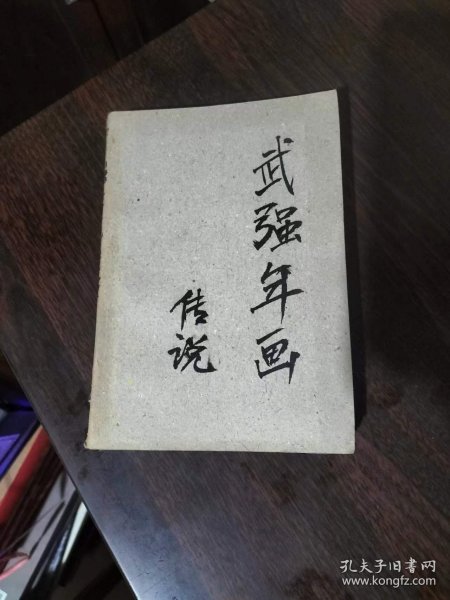 武强年画
传说
孔夫子旧书网
www.kongfz.com